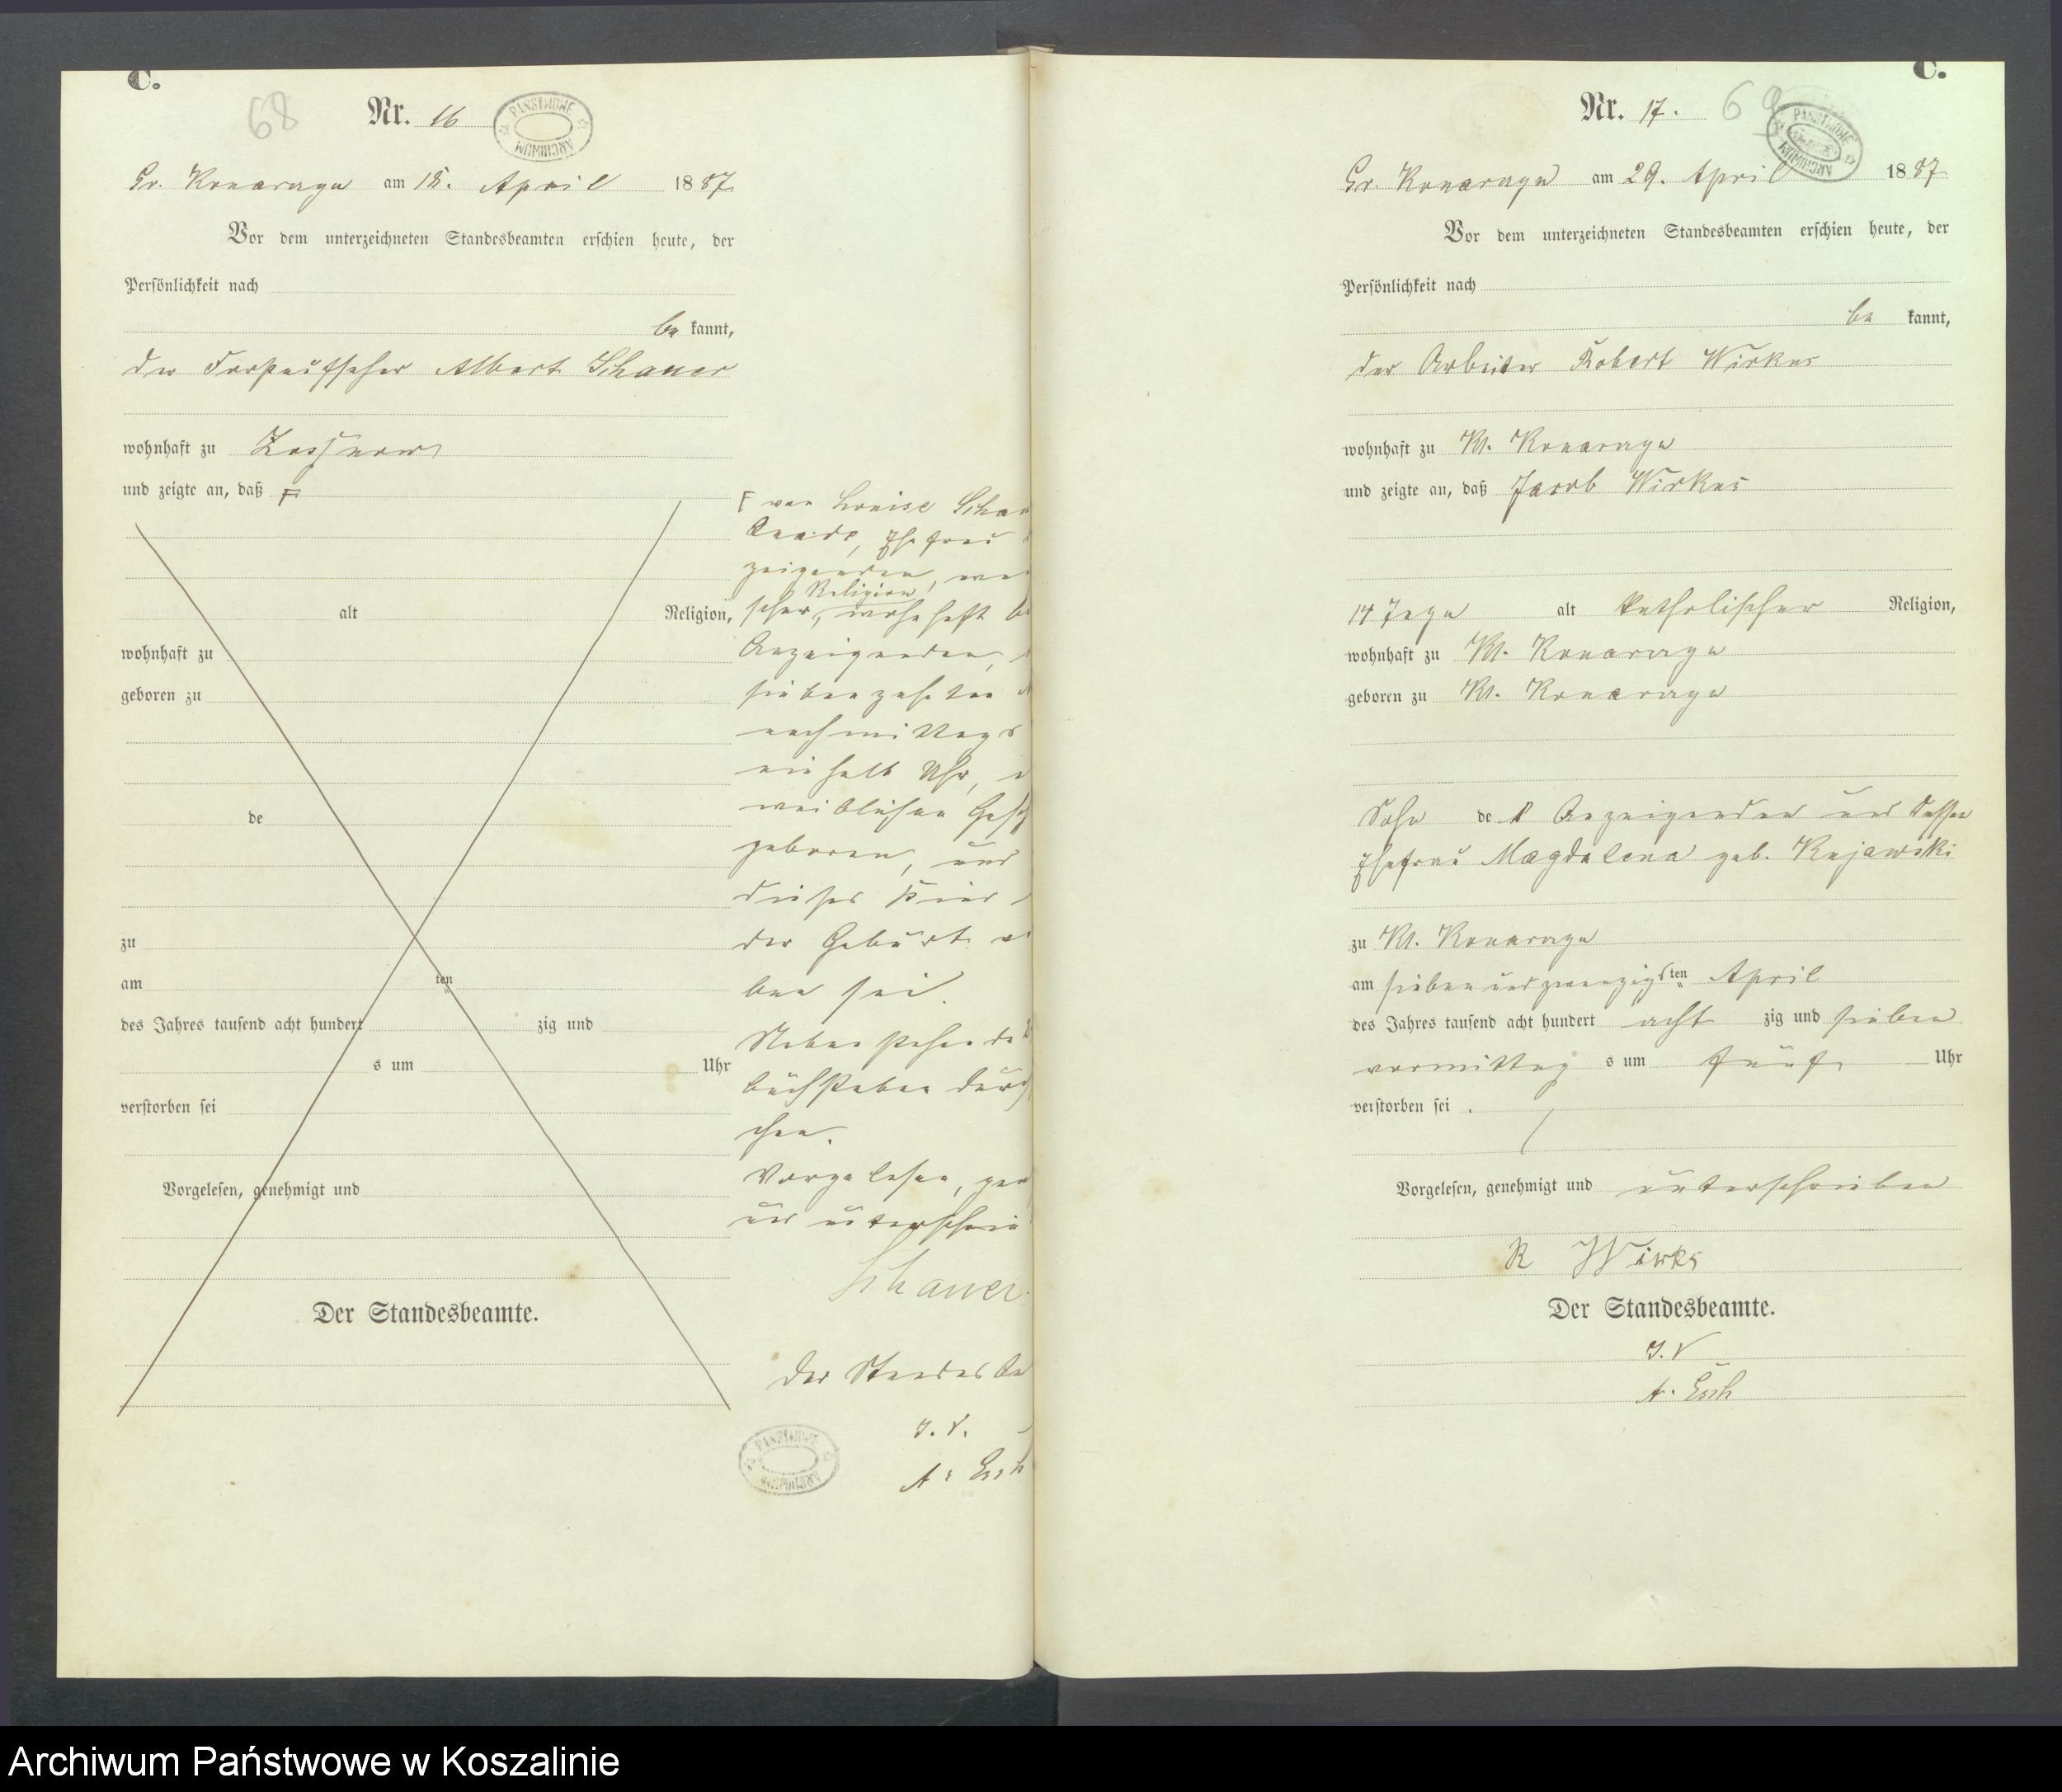 C.
68
Nr. 16
PAŃSTWOWE ARCHIWUM
Gr. Konarczyn am 18. April 1887
Vor dem unterzeichneten Standesbeamten erschien heute, der
Persönlichkeit nach
be kannt,
der Albert Schauer
wohnhaft zu
und zeigte an, daß F
alt Religion,
wohnhaft zu
geboren zu
de
zu
am ten
des Jahres tausend acht hundert zig und
s um Uhr
verstorben sei
Vorgelesen, genehmigt und
Der Standesbeamte.
F von Louise Schau
Ehefrau
zeigenden,
Religion
scher, wohnhaft be
Anzeigenden,
siebenzehnten A
nachmittags
einhalb Uhr,
weiblichen Gesch
geboren, und
dieses Kind
der Geburt
ben sei.
Nebenstehende
buchstaben durch
chen.
Vorgelesen, gen
und unterschrie
Schauer.
Der Standesbe
I. V.
A. Esch
PAŃSTWOWE ARCHIWUM
C.
Nr. 17.
69
PAŃSTWOWE ARCHIWUM
Gr. Konarczyn am 29. April 1887
Vor dem unterzeichneten Standesbeamten erschien heute, der
Persönlichkeit nach
be kannt,
der Arbeiter Robert Wirkus
wohnhaft zu Kl. Konarczyn
und zeigte an, daß Jacob Wirkus
14 Tage alt katholischer Religion,
wohnhaft zu Kl. Konarczyn
geboren zu Kl. Konarczyn
Sohn des Anzeigenden und dessen
Ehefrau Magdalena geb. Kujawski
zu Kl. Konarczyn
am siebenundzwanzigsten April
des Jahres tausend acht hundert achtzig und sieben
vormittags um fünf Uhr
verstorben sei.
Vorgelesen, genehmigt und unterschrieben
R Wirks
Der Standesbeamte.
I. V
A. Esch
Archiwum Państwowe w Koszalinie